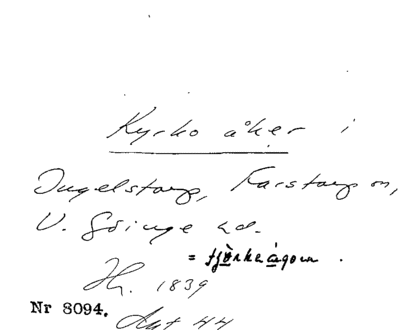 Kyrko åker i
Ingelstorp, Farstorp sn,
V. Göinge hd.
= tjörkeågorn.
Hr. 1839
Nr 8094. Ant 44